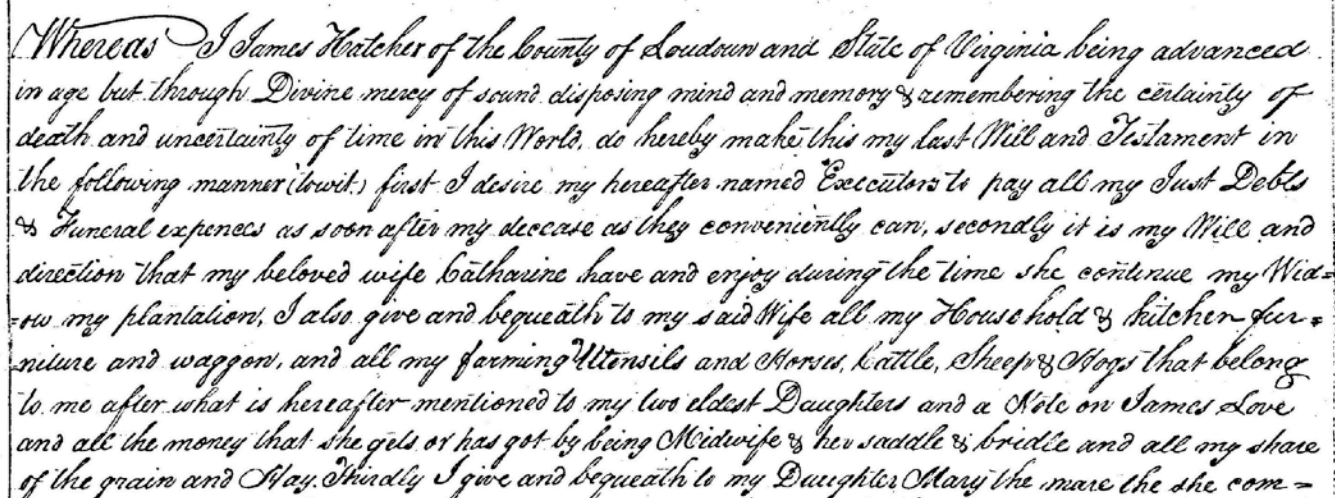 Whereas I James Hatcher of the County of Loudoun and State of Virginia being advanced
in age but through Divine mercy of sound disposing mind and memory & remembering the certainty of
death and uncertainty of time in this World, do hereby make this my last Will and Testament in
the following manner (towit.) first I desire my hereafter named Executors to pay all my Just Debts
& Funeral expences as soon after my decease as they conveniently can, secondly it is my Will and
direction that my beloved wife Catharine have and enjoy during the time she continue my Wid=
=ow my plantation, I also give and bequeath to my said Wife all my Household & kitchen fur=
=niture and waggon, and all my farming Utensils and Horses, Cattle, Sheep & Hogs that belong
to me after what is hereafter mentioned to my two eldest Daughters and a Note on James Love
and all the money that she gets or has got by being Midwife & her saddle & bridle and all my share
of the grain and Hay. Thirdly I give and bequeath to my Daughter Mary the mare the she com=